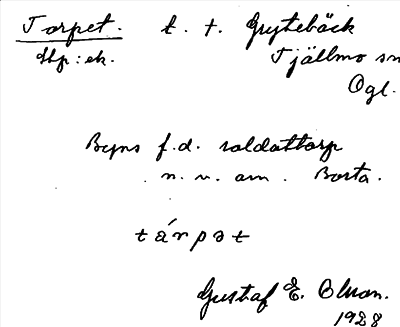 Torpet. t. t. Grytebäck
Stp: ek. Tjällmo sn
Ögl.
Byns f.d. soldattorp
n. v. om. Borta.
tárpət
Gustaf E. Olson.
1928